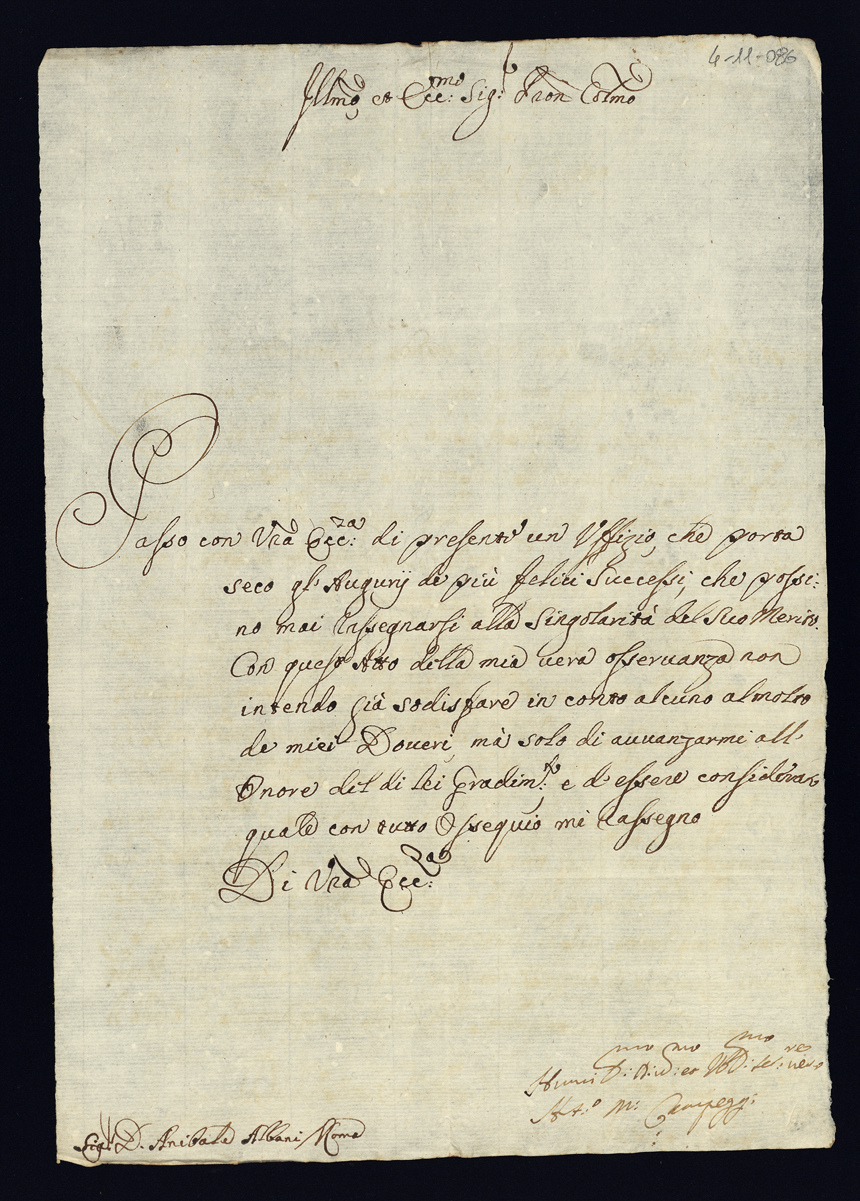 4-11-086
Illmo et Ecc:mo Sig:r Pron Colmo
Passo con Vra Ecc:za di presente un Uffizio, che porta
seco gl'Augurij de più felici Successi, che possi:
no mai rassegnarsi alla Singolarità del Suo Merito.
Con quest'Atto della mia vera osservanza non
intendo già sodisfare in conto alcuno al molto
de miei Doveri, mà solo di avvanzarmi all'
Onore del di lei Gradim:to e d'essere considerato
quale con tutto Ossequio mi rassegno
Di Vra Ecc:za
Campeggi
Sig:r D. Anibale Albani Roma